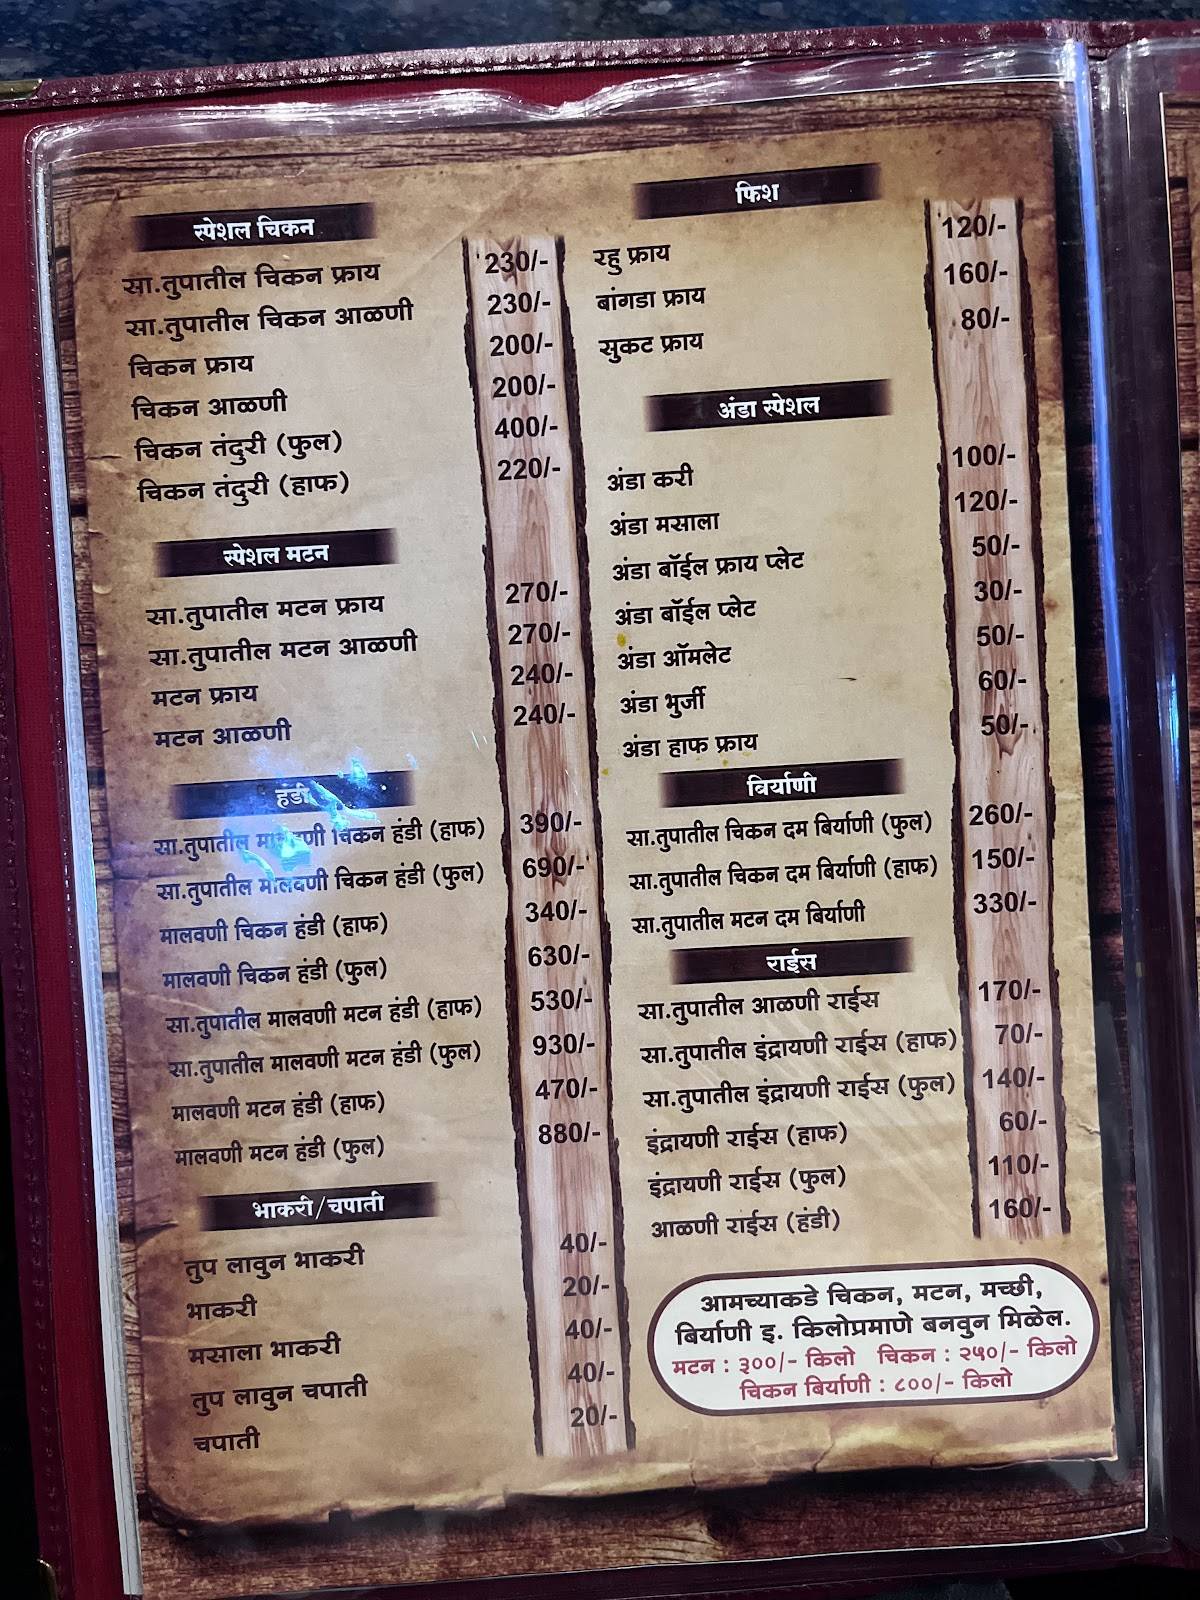 स्पेशल चिकन
सा.तुपातील चिकन फ्राय 230/-
सा.तुपातील चिकन आळणी 230/-
चिकन फ्राय 200/-
चिकन आळणी 200/-
चिकन तंदुरी (फुल) 400/-
चिकन तंदुरी (हाफ) 220/-
स्पेशल मटन
सा.तुपातील मटन फ्राय 270/-
सा.तुपातील मटन आळणी 270/-
मटन फ्राय 240/-
मटन आळणी 240/-
हंडी
सा.तुपातील मालवणी चिकन हंडी (हाफ) 390/-
सा.तुपातील मालवणी चिकन हंडी (फुल) 690/-
मालवणी चिकन हंडी (हाफ) 340/-
मालवणी चिकन हंडी (फुल) 630/-
सा.तुपातील मालवणी मटन हंडी (हाफ) 530/-
सा.तुपातील मालवणी मटन हंडी (फुल) 930/-
मालवणी मटन हंडी (हाफ) 470/-
मालवणी मटन हंडी (फुल) 880/-
भाकरी/चपाती
तुप लावुन भाकरी 40/-
भाकरी 20/-
मसाला भाकरी 40/-
तुप लावुन चपाती 40/-
चपाती 20/-
फिश
रहु फ्राय 120/-
बांगडा फ्राय 160/-
सुकट फ्राय 80/-
अंडा स्पेशल
अंडा करी 100/-
अंडा मसाला 120/-
अंडा बॉईल फ्राय प्लेट 50/-
अंडा बॉईल प्लेट 30/-
अंडा ऑमलेट 50/-
अंडा भुर्जी 60/-
अंडा हाफ फ्राय 50/-
बिर्याणी
सा.तुपातील चिकन दम बिर्याणी (फुल) 260/-
सा.तुपातील चिकन दम बिर्याणी (हाफ) 150/-
सा.तुपातील मटन दम बिर्याणी 330/-
राईस
सा.तुपातील आळणी राईस 170/-
सा.तुपातील इंद्रायणी राईस (हाफ) 70/-
सा.तुपातील इंद्रायणी राईस (फुल) 140/-
इंद्रायणी राईस (हाफ) 60/-
इंद्रायणी राईस (फुल) 110/-
आळणी राईस (हंडी) 160/-
आमच्याकडे चिकन, मटन, मच्छी,
बिर्याणी इ. किलोप्रमाणे बनवुन मिळेल.
मटन : ३००/- किलो चिकन : २५०/- किलो
चिकन बिर्याणी : ८००/- किलो